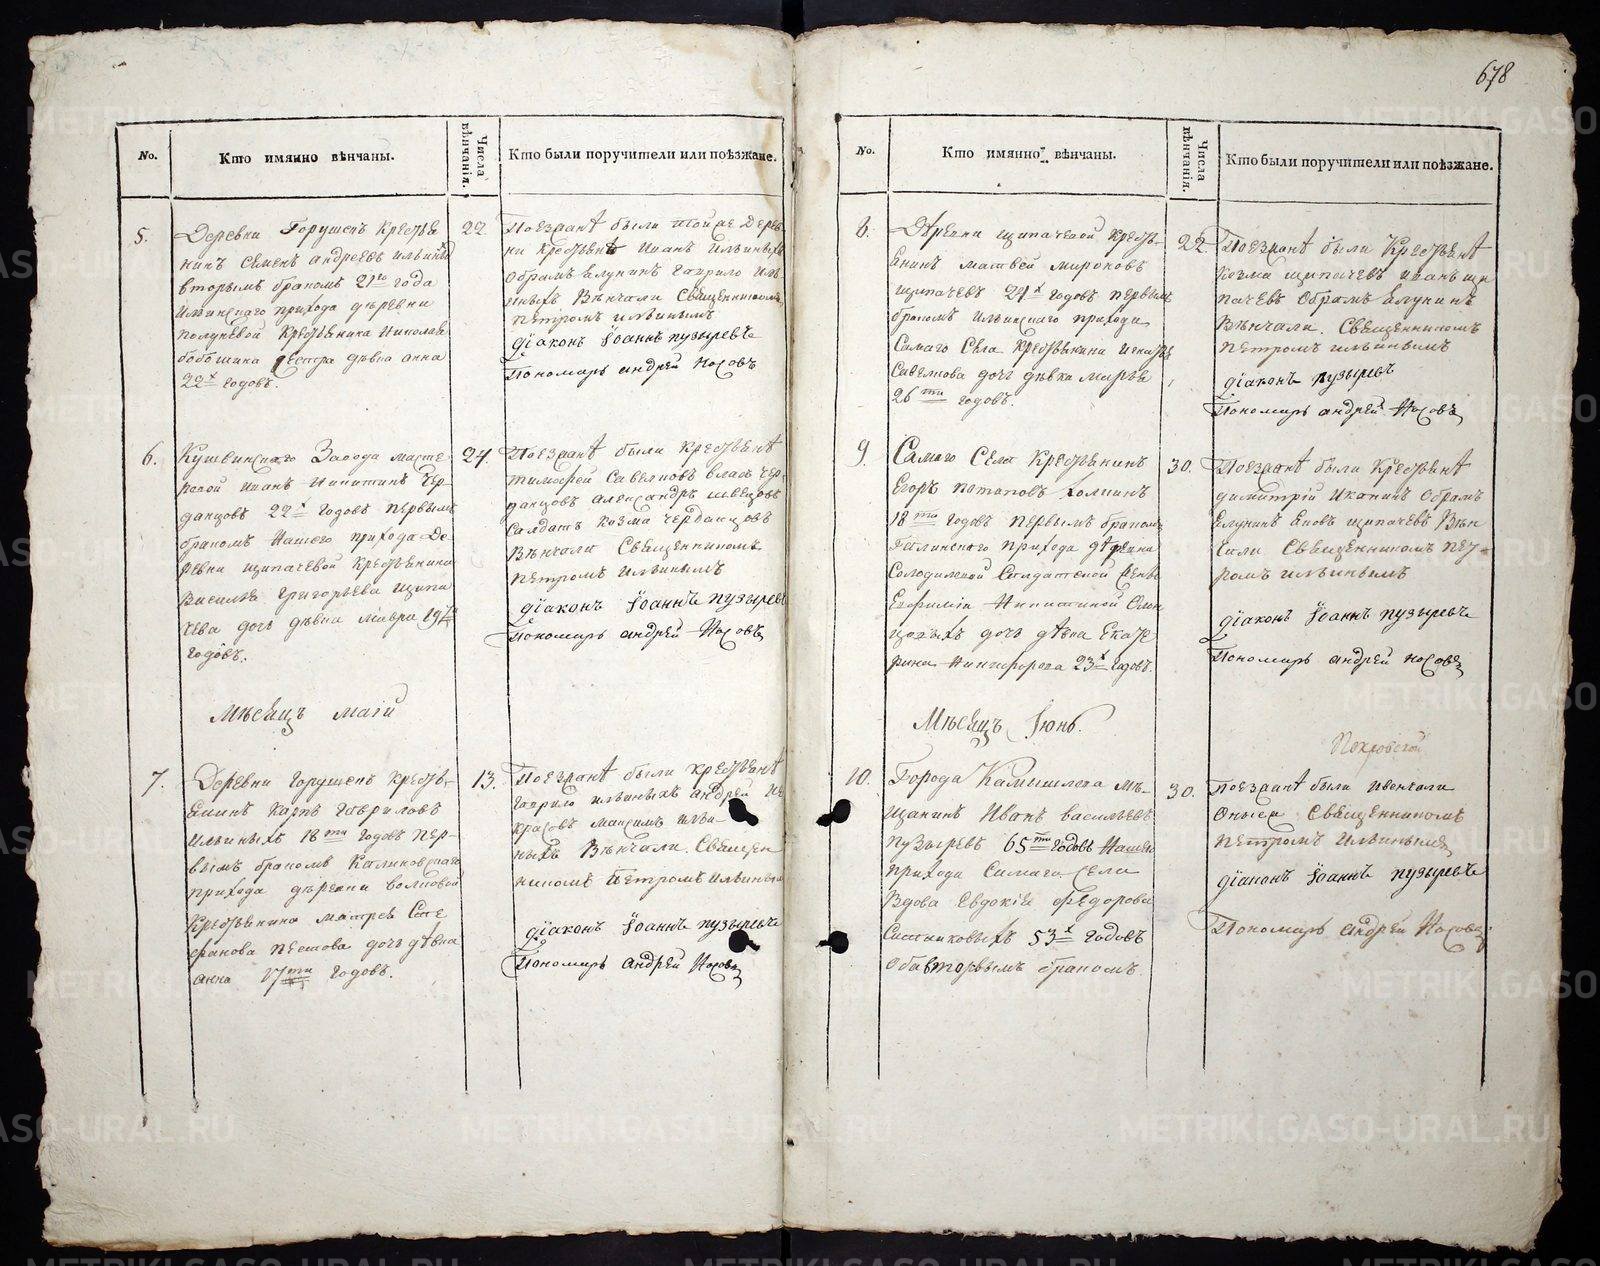 678
No.
Кто имянно вѣнчаны.
Числа вѣнчанія.
Кто были поручители или поѣзжане.
5.
Деревни Горушекъ Крестья
нинъ Семенъ андреевъ ильиныхъ
вторымъ бракомъ 21го года
ильинскаго прихода деревни
Крестьянина Николая
сестра дѣвка анна
22х годовъ.
22.
Поезжанѣ были тойже дерев
ни крестьянѣ иванъ ильиныхъ
Обрамъ Елукинъ гаврило иль
иныхъ Вѣнчали Священникомъ
петромъ ильинымъ
діаконъ Іоаннъ пузыревъ
Пономарь андрей Носовъ
6.
Кушвинскаго Завода масте
ровой иванъ Никитинъ чер
данцовъ 22х годовъ первымъ
бракомъ Нашего прихода де
ревни щипачевой крестьянина
Василья григорьева щипа
чева дочь дѣвка мавра 19ти
годовъ.
24.
Поезжанѣ были крестьянѣ
тимофей Савельевъ власъ чер
данцовъ александръ швецовъ
Салдатъ козма черданцовъ
Вѣнчали Священникомъ
петромъ ильинымъ
діаконъ Іоаннъ пузыревъ
Пономарь андрей Носовъ
Мѣсяцъ маій
7.
Деревни горушекъ крестья
янинъ карпъ гавриловъ
ильиныхъ 18ти годовъ пер-
вымъ бракомъ Калиновскаго
прихода деревни волковой
крестьянина матвея Сте
фанова пешкова дочь дѣвка
анна 17ти годовъ.
13.
Поезжанѣ были крестьянѣ
гаврило ильиныхъ андрей не
красовъ максимъ ильи-
ныхъ Вѣнчали Священ
никомъ Петромъ ильинымъ
діаконъ Іоаннъ пузыревъ
Пономарь андрей Носовъ
No.
Кто имянно вѣнчаны.
Числа вѣнчанія.
Кто были поручители или поѣзжане.
8.
Деревни щипачевой кресть-
янинъ матвей мироновъ
щипачевъ 24х годовъ первымъ
бракомъ ильинскаго прихода
Самаго Села крестьянина игнатья
Савелкова дочь дѣвка марья
26ти годовъ.
22.
Поезжанѣ были крестьянѣ
козма щипачевъ иванъ щи
пачевъ Обрамъ Елукинъ
Вѣнчали. Священникомъ
петромъ ильинымъ
діаконъ пузыревъ
Пономарь андрей Носовъ
9.
Самаго Села Крестьянинъ
Егоръ потаповъ холкинъ
18ти годовъ первымъ бракомъ
прихода деревни
Солодиловой Салдатской
Никитиной
цовыхъ дочь дѣвка Екате
рина Никифорова 23х годовъ.
30.
Поезжанѣ были Крестьянѣ
димитрій Икакинъ Обрамъ
Елукинъ щипачевъ Вѣн
чали Священникомъ пет-
ромъ ильинымъ
діаконъ Іоаннъ пузыревъ
Пономарь андрей носовъ
Мѣсяцъ Іюнь.
10.
Города Камышлова мѣ-
щанинъ Иванъ васильевъ
пузыревъ 65ти годовъ Нашего
прихода Самаго Села
Вдова Евдокія Федорова
Ситниковыхъ 53х годовъ
Оба вторымъ бракомъ.
Покровской
30.
Поезжанѣ были ивѣнчали
Оныхъ Священникомъ
петромъ Ильинымъ
діаконъ Іоаннъ пузыревъ
Пономарь андрей Носовъ
METRIKI.GASO-URAL.RU